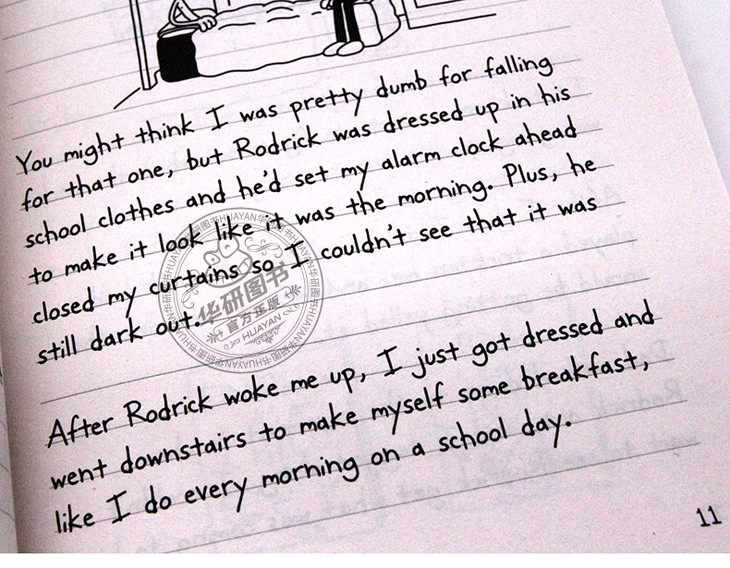 You might think I was pretty dumb for falling
for that one, but Rodrick was dressed up in his
school clothes and he'd set my alarm clock ahead
to make it look like it was the morning. Plus, he
closed my curtains so I couldn't see that it was
still dark out.
华研图书
官方正版
HUAYAN
After Rodrick woke me up, I just got dressed and
went downstairs to make myself some breakfast,
like I do every morning on a school day.
11